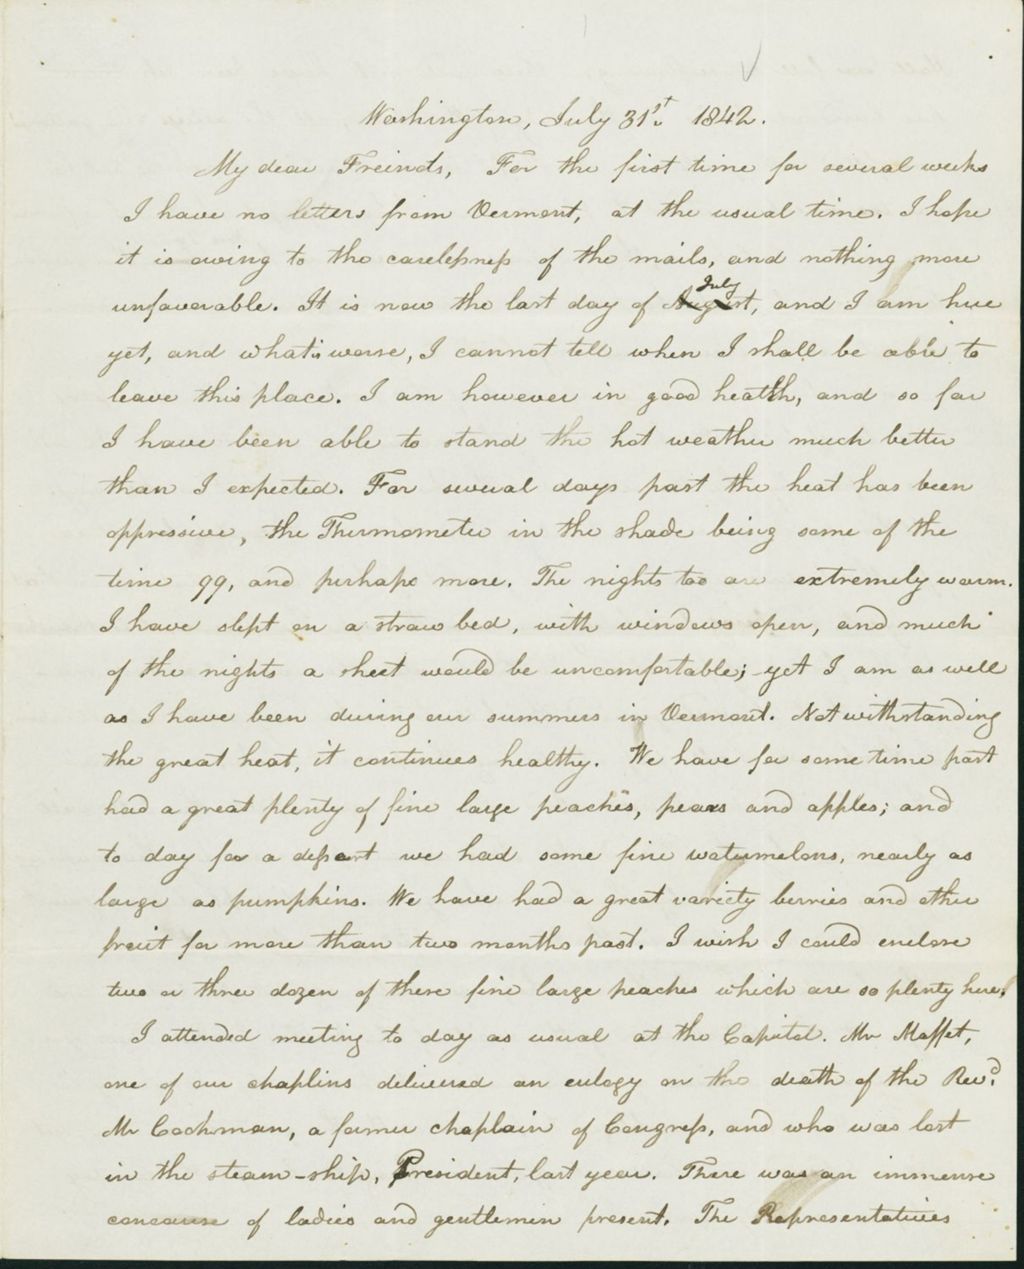 Washington, July 31st 1842.
My dear Freinds, For the first time for several weeks
I have no letters from Vermont, at the usual time. I hope
it is owing to the carelessness of the mails, and nothing more
unfavorable. It is now the last day of August, July and I am here
yet, and what's worse, I cannot tell when I shall be able to
leave this place. I am however in good health, and so far
I have been able to stand the hot weather much better
than I expected. For several days past the heat has been
oppressive, the Thermometer in the shade being some of the
time 99, and perhaps more. The nights too are extremely warm.
I have slept on a straw bed, with windows open, and much
of the nights a sheet would be uncomfortable; yet I am as well
as I have been during our summers in Vermont. Notwithstanding
the great heat, it continues healthy. We have for some time past
had a great plenty of fine large peaches, pears and apples; and
to day for a desert we had some fine watermelons, nearly as
large as pumpkins. We have had a great variety berries and other
freuit for more than two months past. I wish I could enclose
two or three dozen of these fine large peaches which are so plenty here.
I attended meeting to day as usual at the Capitol. Mr Maffet,
one of our chaplins delivered an eulogy on the death of the Revd.
Mr Cookman, a former chaplain of Congress, and who was lost
in the steam-ship, President, last year. There was an immense
concourse of ladies and gentlemen present. The Representatives